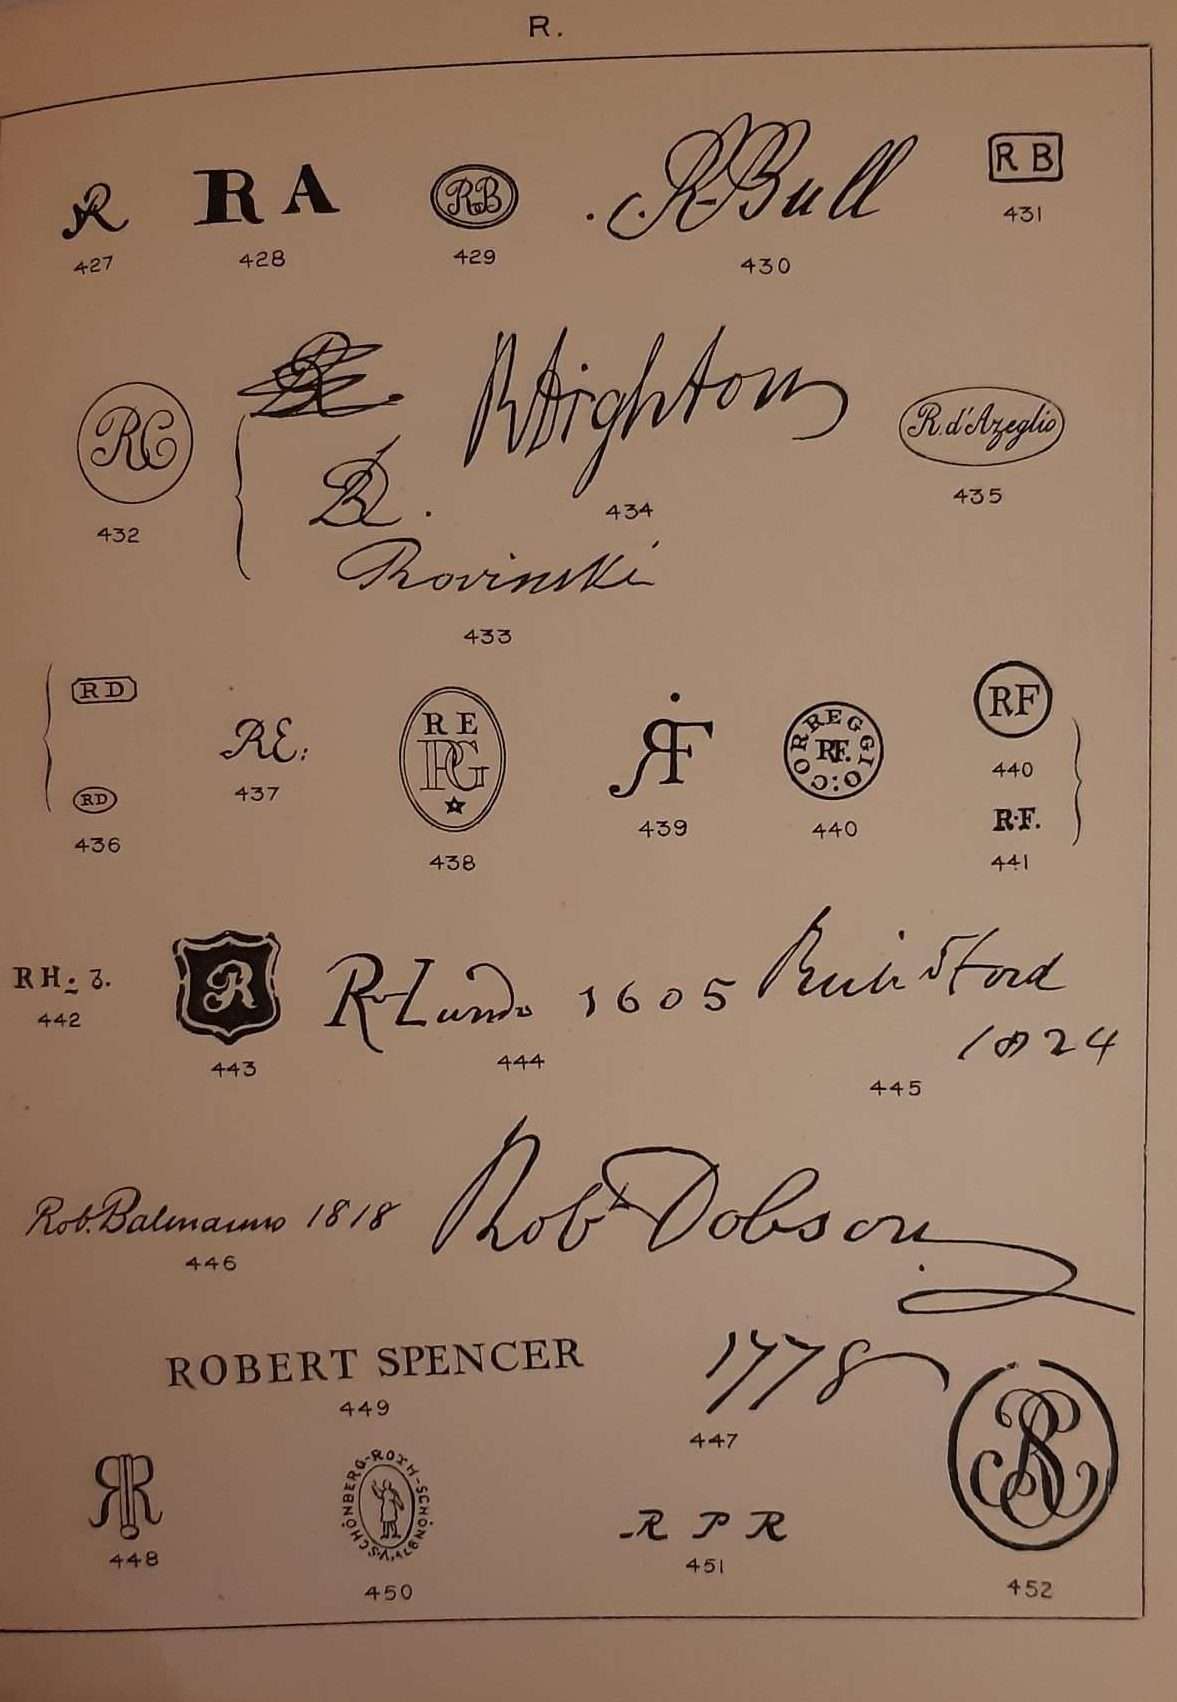 R.
R
R A
R B
R. Bull
R B
427
428
429
430
431
RC
R. d'Azeglio
432
434
435
Rovinski
433
R D
R D
436
RE:
437
R E
PG
438
RF
439
CORREGGIO:
RF.
440
RF
440
R.F.
441
RH. 3.
442
R
443
R Lund
1605
444
1824
445
Rob. Balmanno 1818
446
Robt Dobson
1778
447
ROBERT SPENCER
449
R R
448
V. SCHÖNBERG-ROTH-SCHÖNBG
450
R P R
451
RS
452